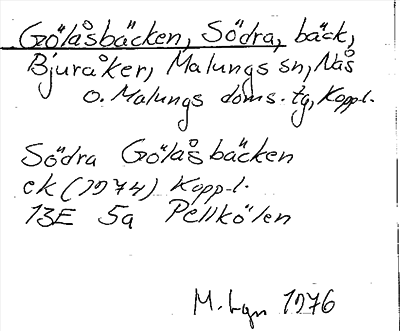 Gölåsbäcken, Södra, bäck,
Bjuråker, Malungs sn, Nås
o. Malungs doms. tg, Koppl.
Södra Gölåsbäcken
ek (1974) Koppl.
13E 5a Pellkölen
M. Lgn 1976